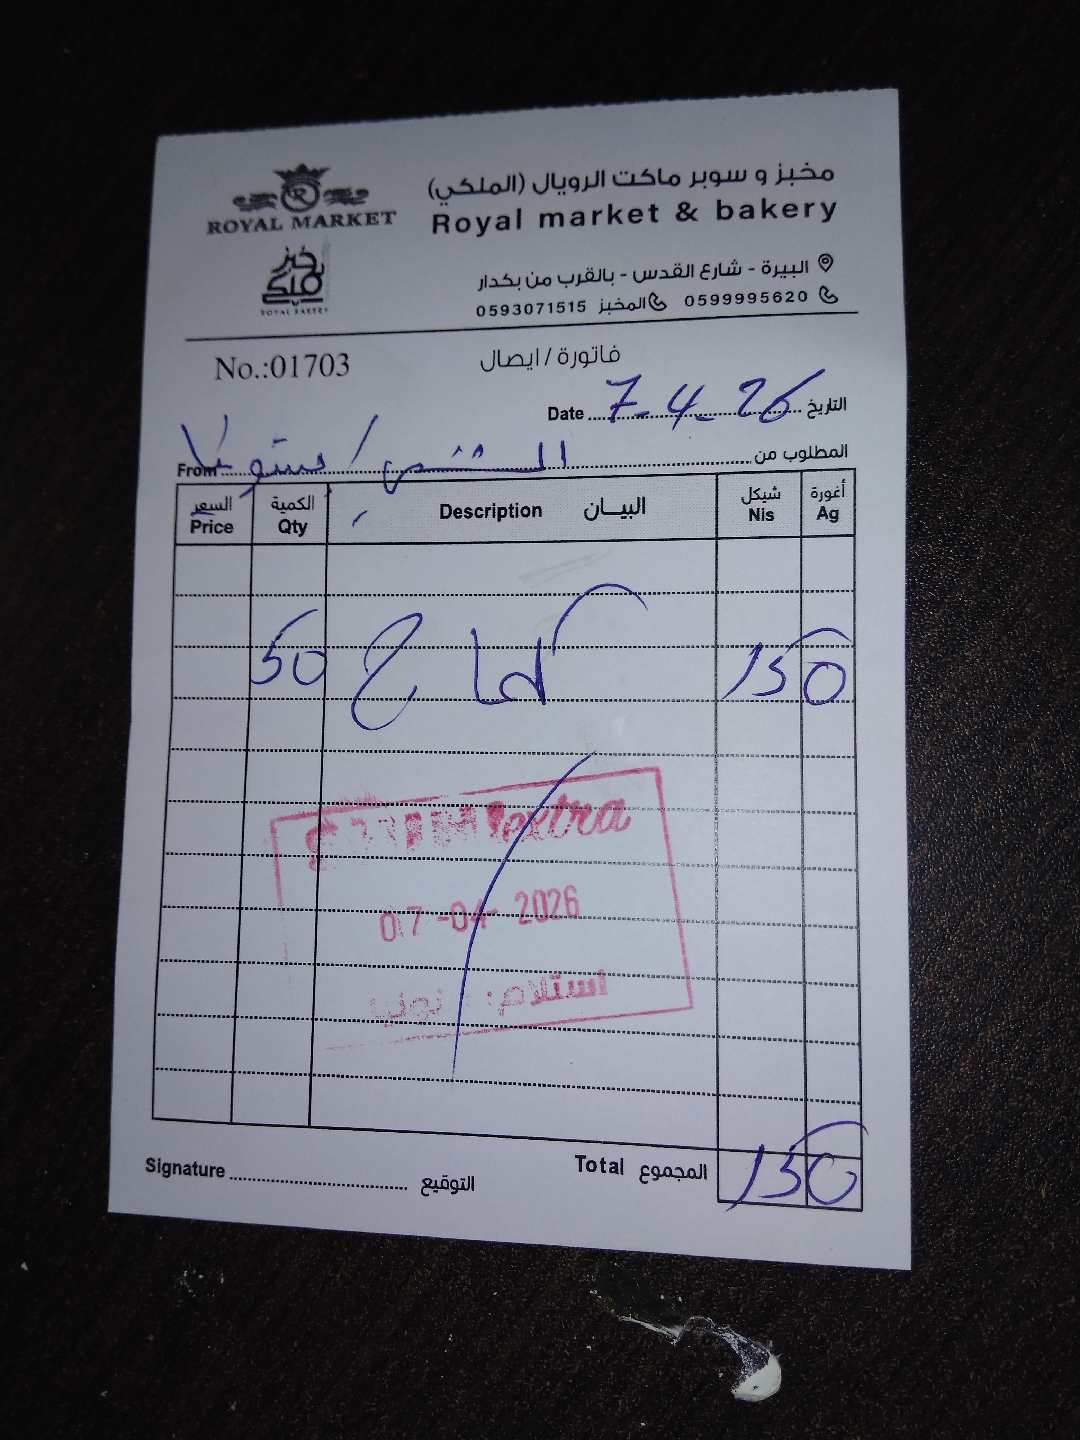 ROYAL MARKET
خبز ملكي
ROYAL BAKERY
مخبز و سوبر ماكت الرويال (الملكي)
Royal market & bakery
البيرة - شارع القدس - بالقرب من بكدار
0599995620 المخبز 0593071515
No.:01703
فاتورة / ايصال
Date 7-4-26 التاريخ
From المطلوب من
السعر الكمية البيـــان شيكل أغورة
Price Qty Description Nis Ag
50 كماج 150
extra
07-04-2026
استلام:
Total المجموع 150
Signature التوقيع